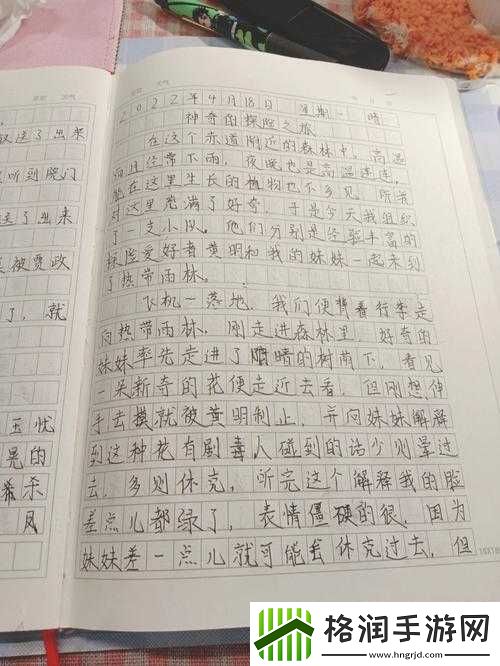 天气
天气
2022年4月18日 星期一 晴
神奇的探险之旅
在这个赤道附近的森林中，高温
而且经常下雨，夜晚也是高温连连，
能在这里生长的植物也不多见，所以
对这里充满了好奇，于是今天我组织
了一支小队。他们分别是经验丰富的
探险爱好者黄明和我的妹妹一起来到
了热带雨林。
飞机一落地，我们便背着行李走
向热带雨林。刚走进森林里，好奇的
妹妹率先走进了阴暗的树荫下，看见
一朵新奇的花便走近去看，但刚想伸
手去摸就被黄明制止，并向妹妹解释
到这种花有剧毒人碰到的话少则晕过
去，多则休克，听完这个解释我的脸
差点儿都绿了，表情僵硬的很，因为
妹妹差一点儿就可能丢休克过去，但
送了出来
听到院门
送了出来
被贾政
了，就
玉忧
晃的
杀
风
格润手游网
www.hngrjd.com